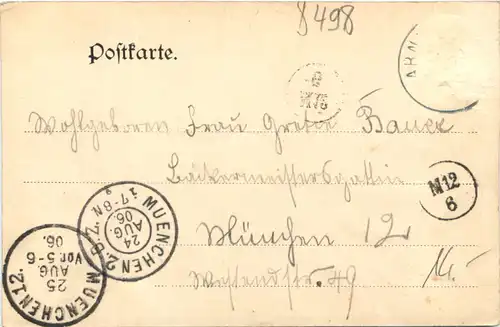 8498
Postkarte.
ARN
Wohlgeboren Frau Gretie Bauer
Bäckermeistersgattin
M12
6
München 12
Westendstr. 49
14.
MUENCHEN 2.B.Z.
7-8 N.
24
AUG
06.
MUENCHEN 12.
25
AUG.
Vor. 5-6
06.